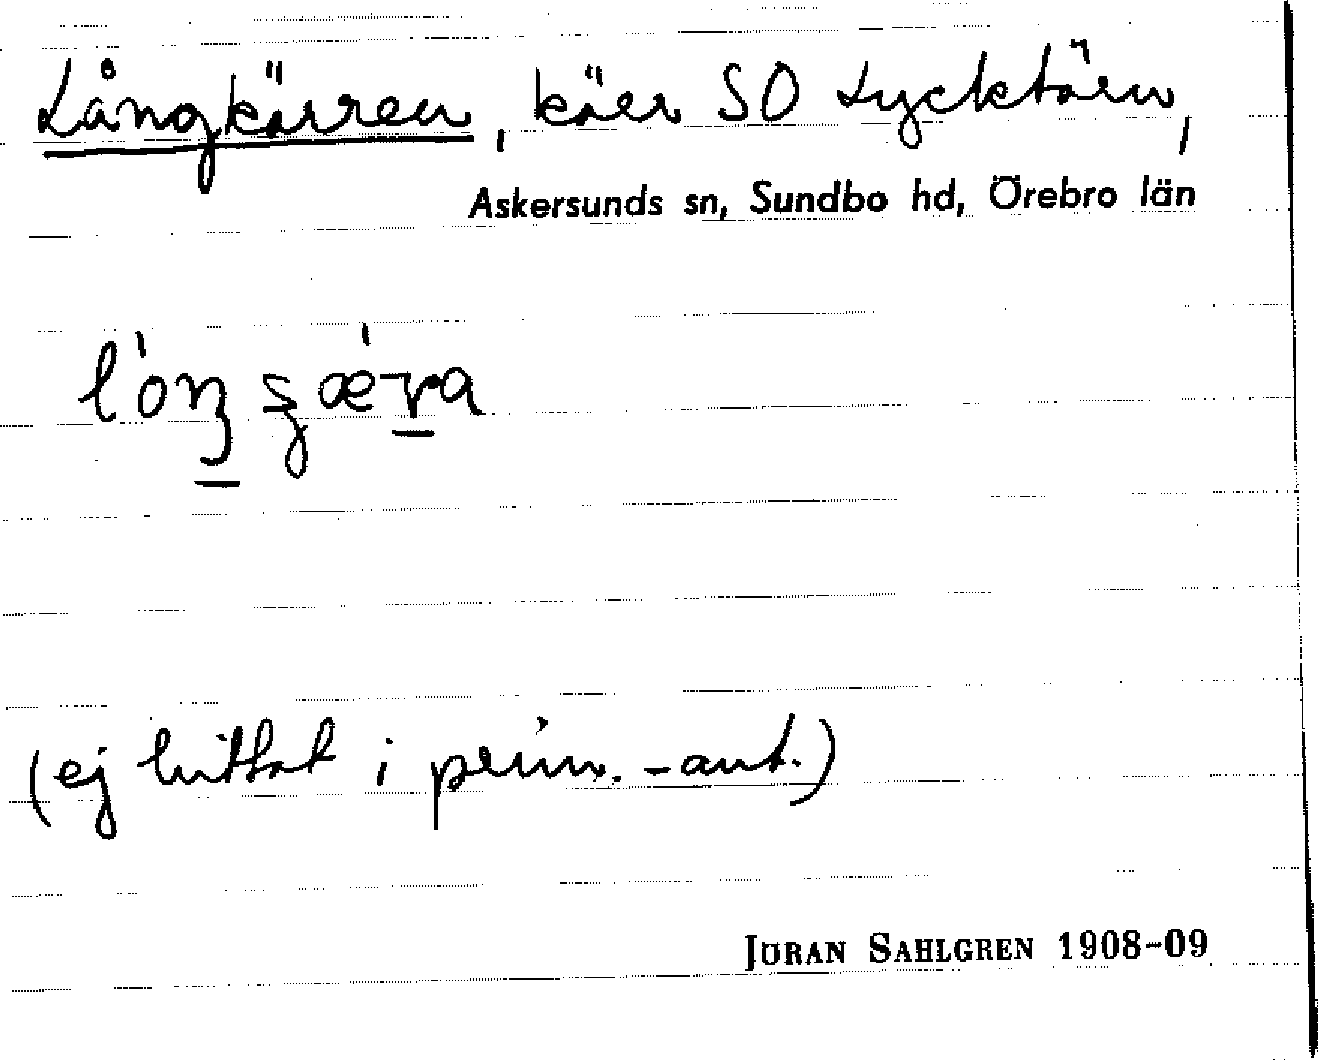 Långkärren, kärr SO Lycktärn,
Askersunds sn, Sundbo hd, Örebro län
(ej hittat i prim.-ant.)
JÖRAN SAHLGREN 1908-09